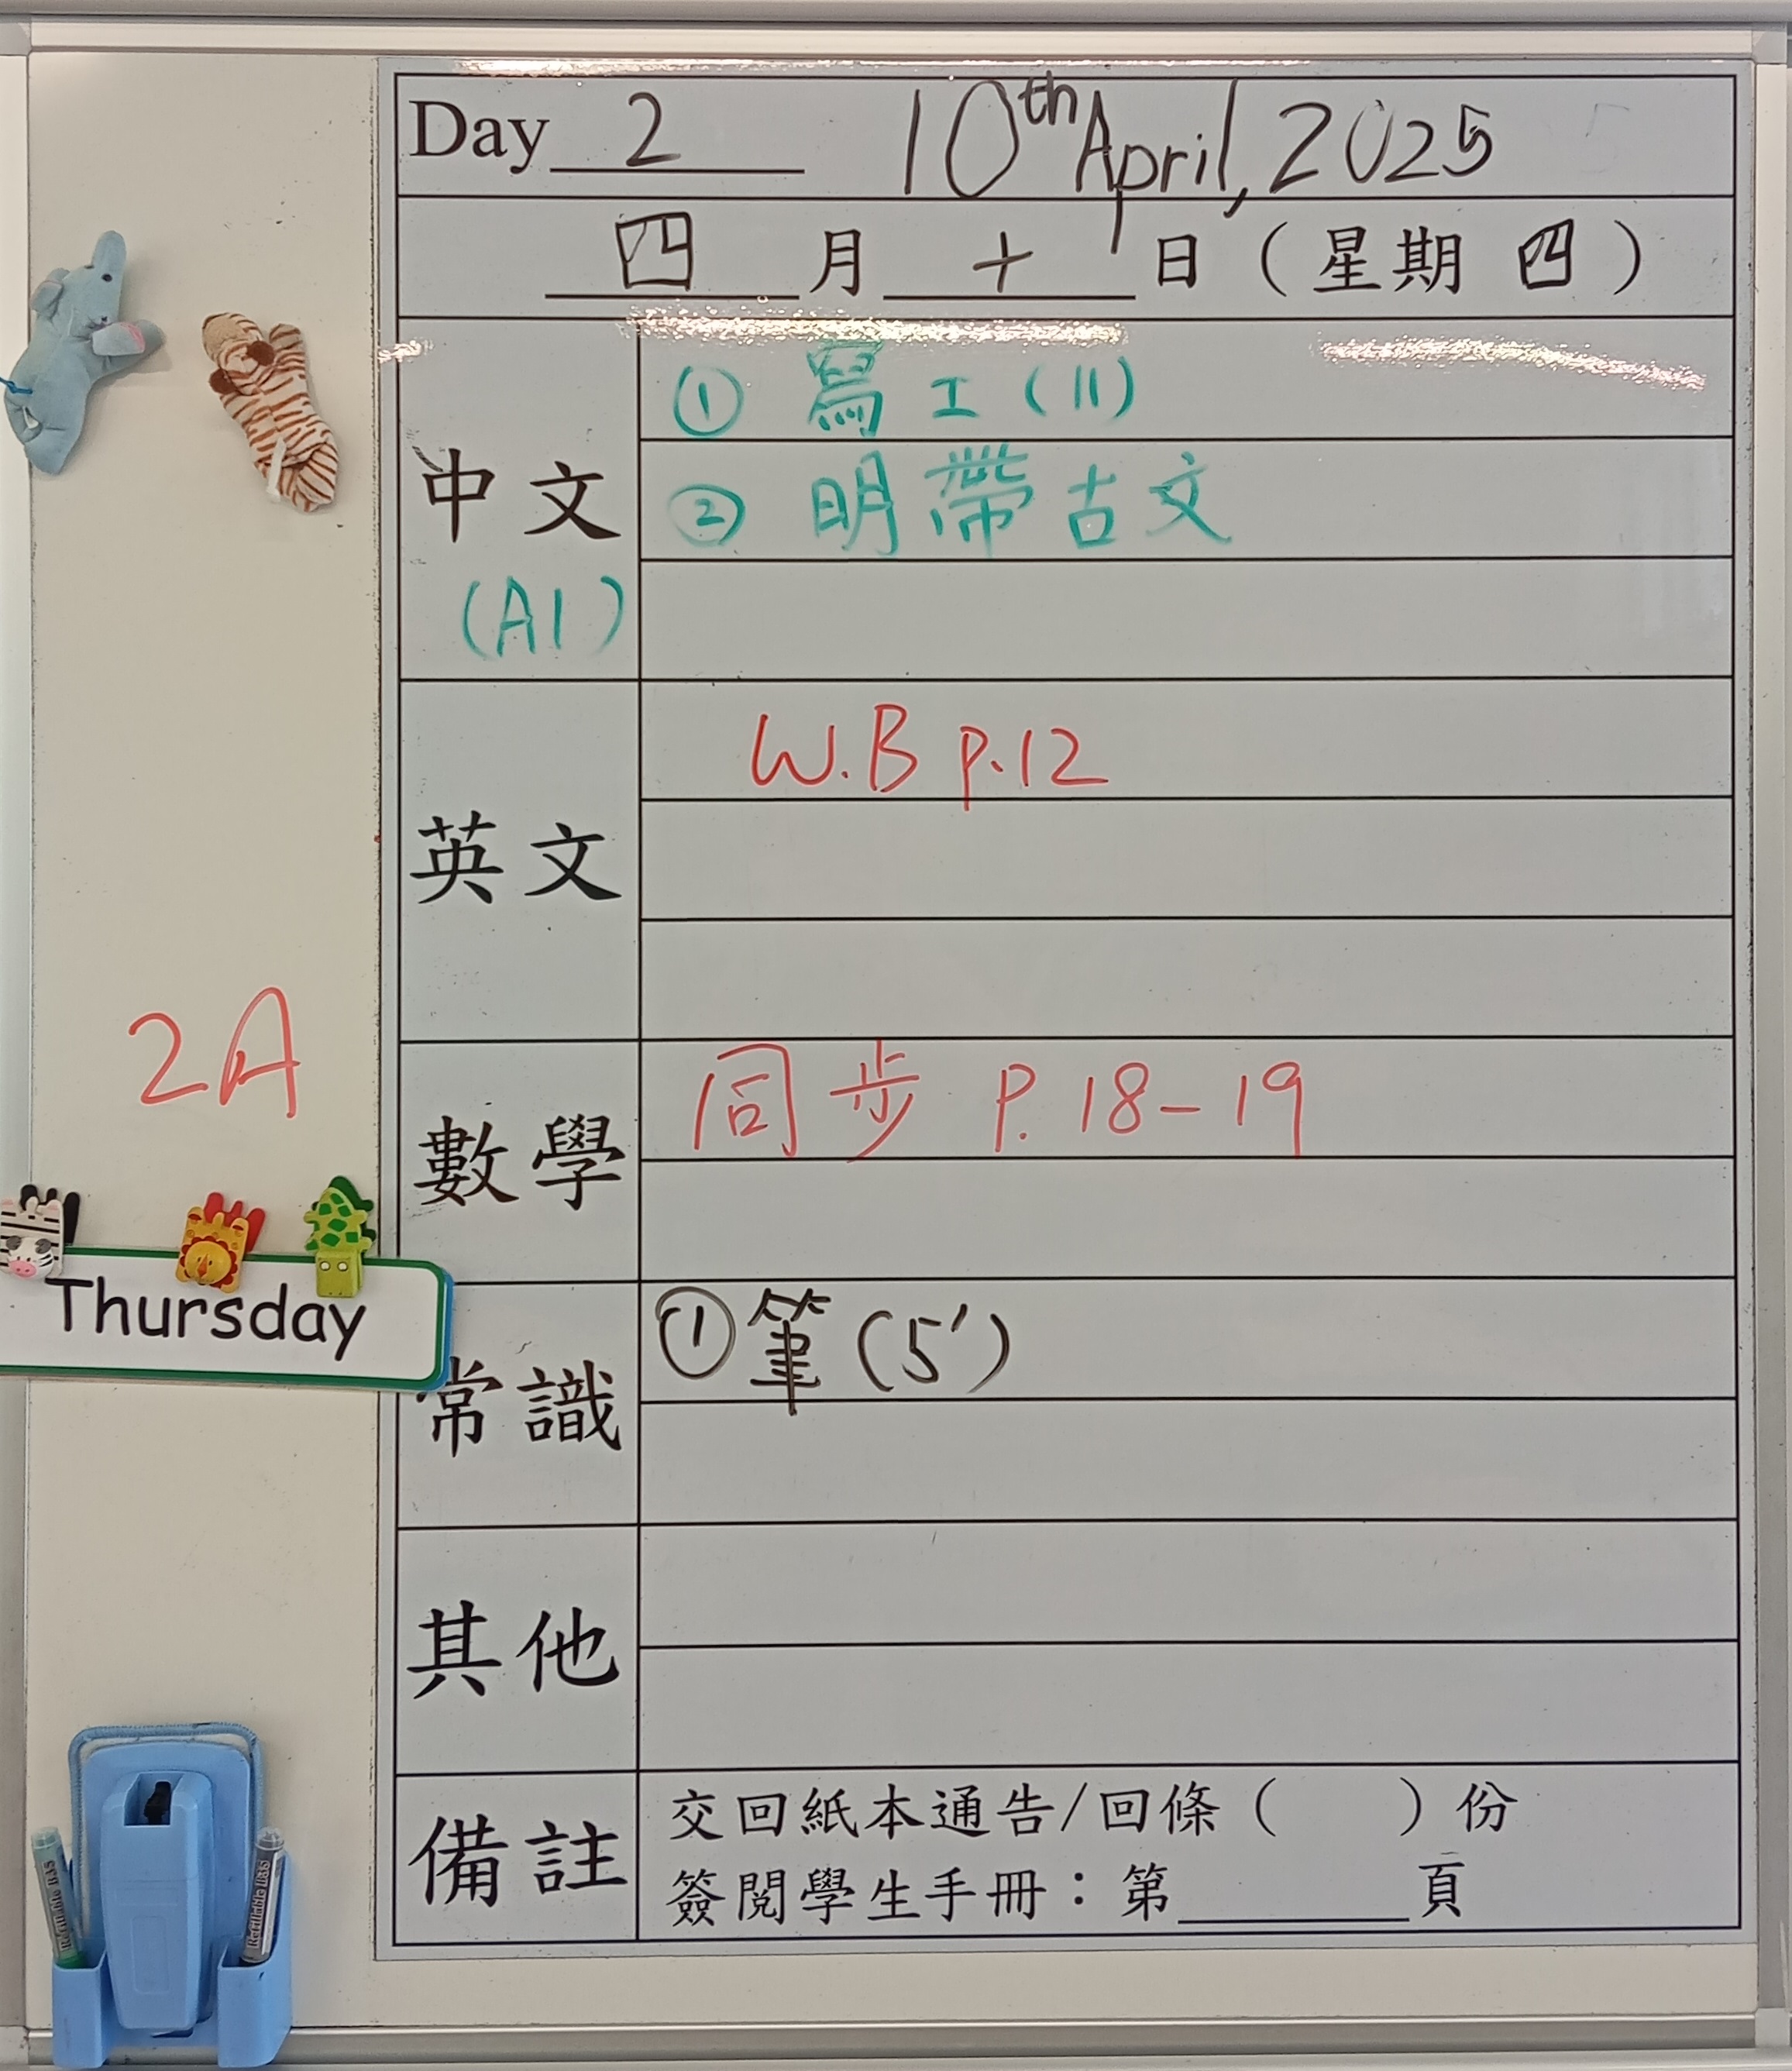 Day 2 10th April, 2025
四月十日（星期四）
中文
(A1)
① 寫工(11)
② 明帶古文
英文
W.B p.12
2A
數學
同步 P.18-19
Thursday
常識
①筆(5')
其他
備註
交回紙本通告/回條（ ）份
簽閱學生手冊：第______頁